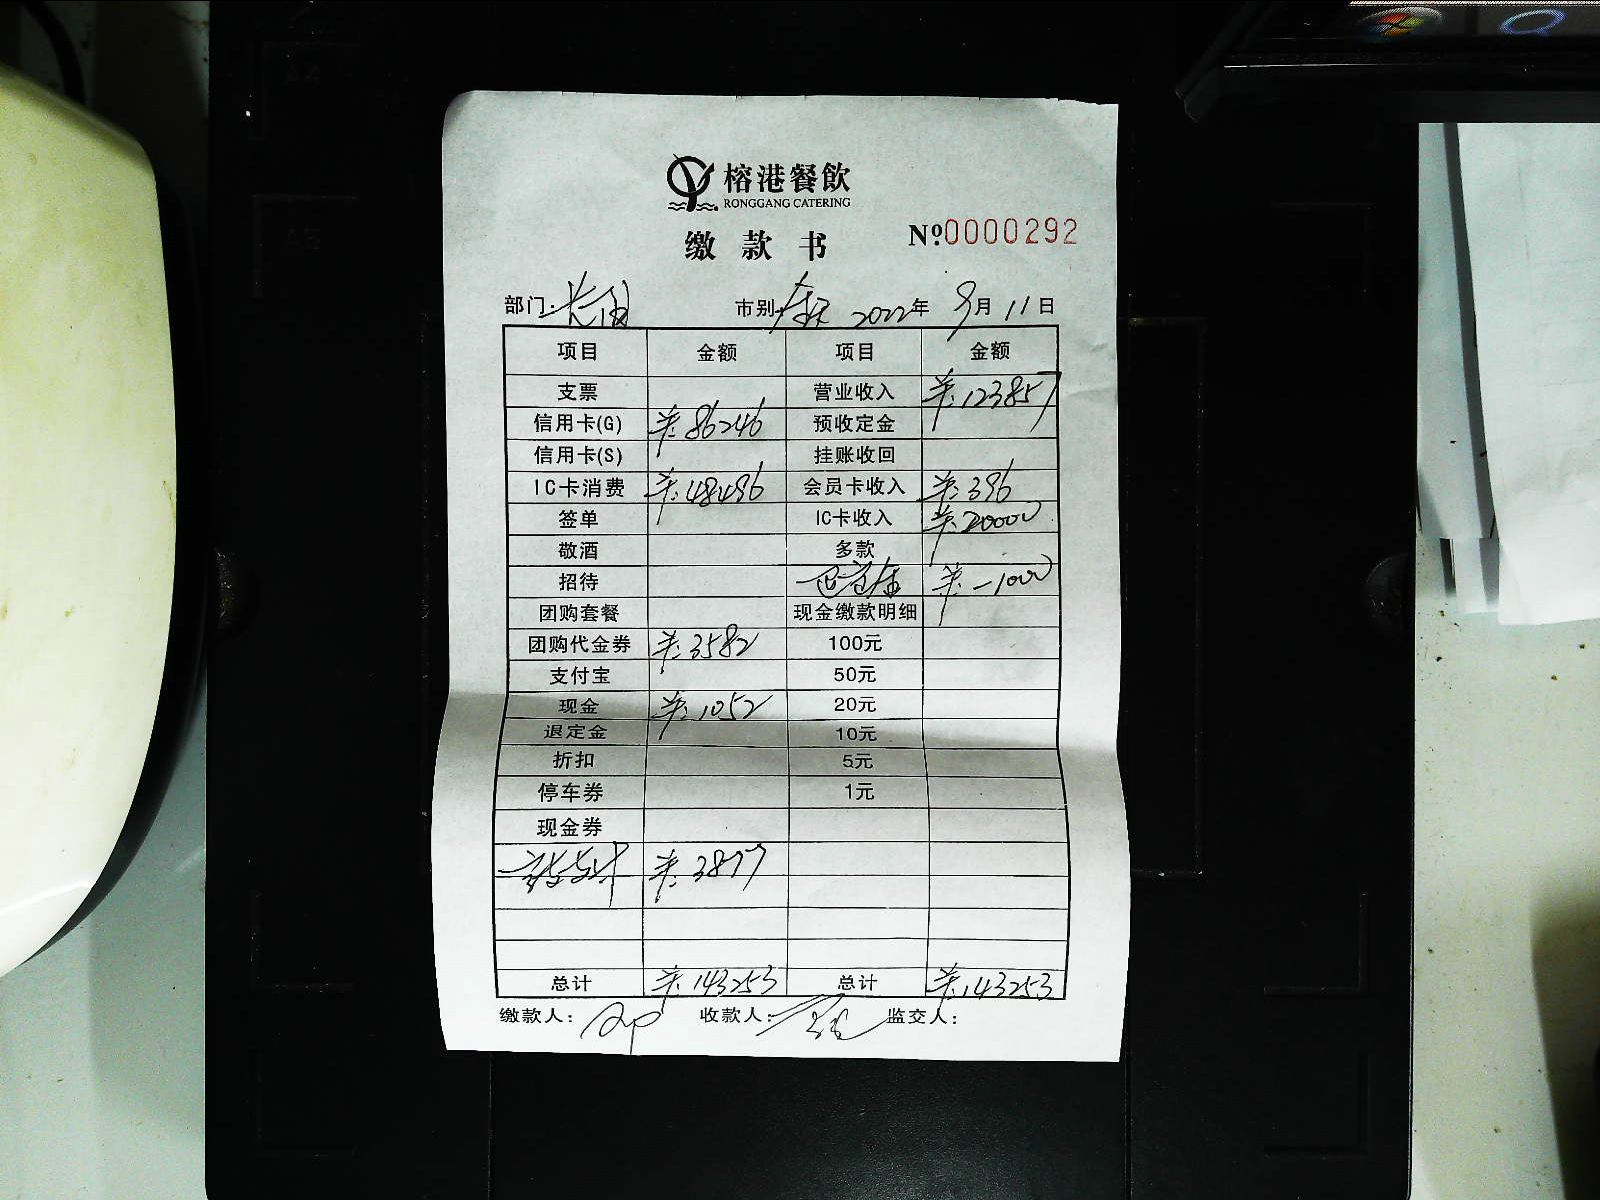 榕港餐飲
RONGGANG CATERING
缴款书
Nº0000292
部门: 市别: 2022年 9月 11日
项目 金额 项目 金额
支票 营业收入 ¥:123857
信用卡(G) ¥:86246 预收定金
信用卡(S) 挂账收回
IC卡消费 ¥:48496 会员卡收入 ¥:396
签单 IC卡收入 ¥:20000
敬酒 多款
招待 退定金 ¥:-1000
团购套餐 现金缴款明细
团购代金券 ¥:3582 100元
支付宝 50元
现金 ¥:1052 20元
退定金 10元
折扣 5元
停车券 1元
现金券
¥:3877
总计 ¥:143253 总计 ¥:143253
缴款人: 收款人: 监交人:
A5